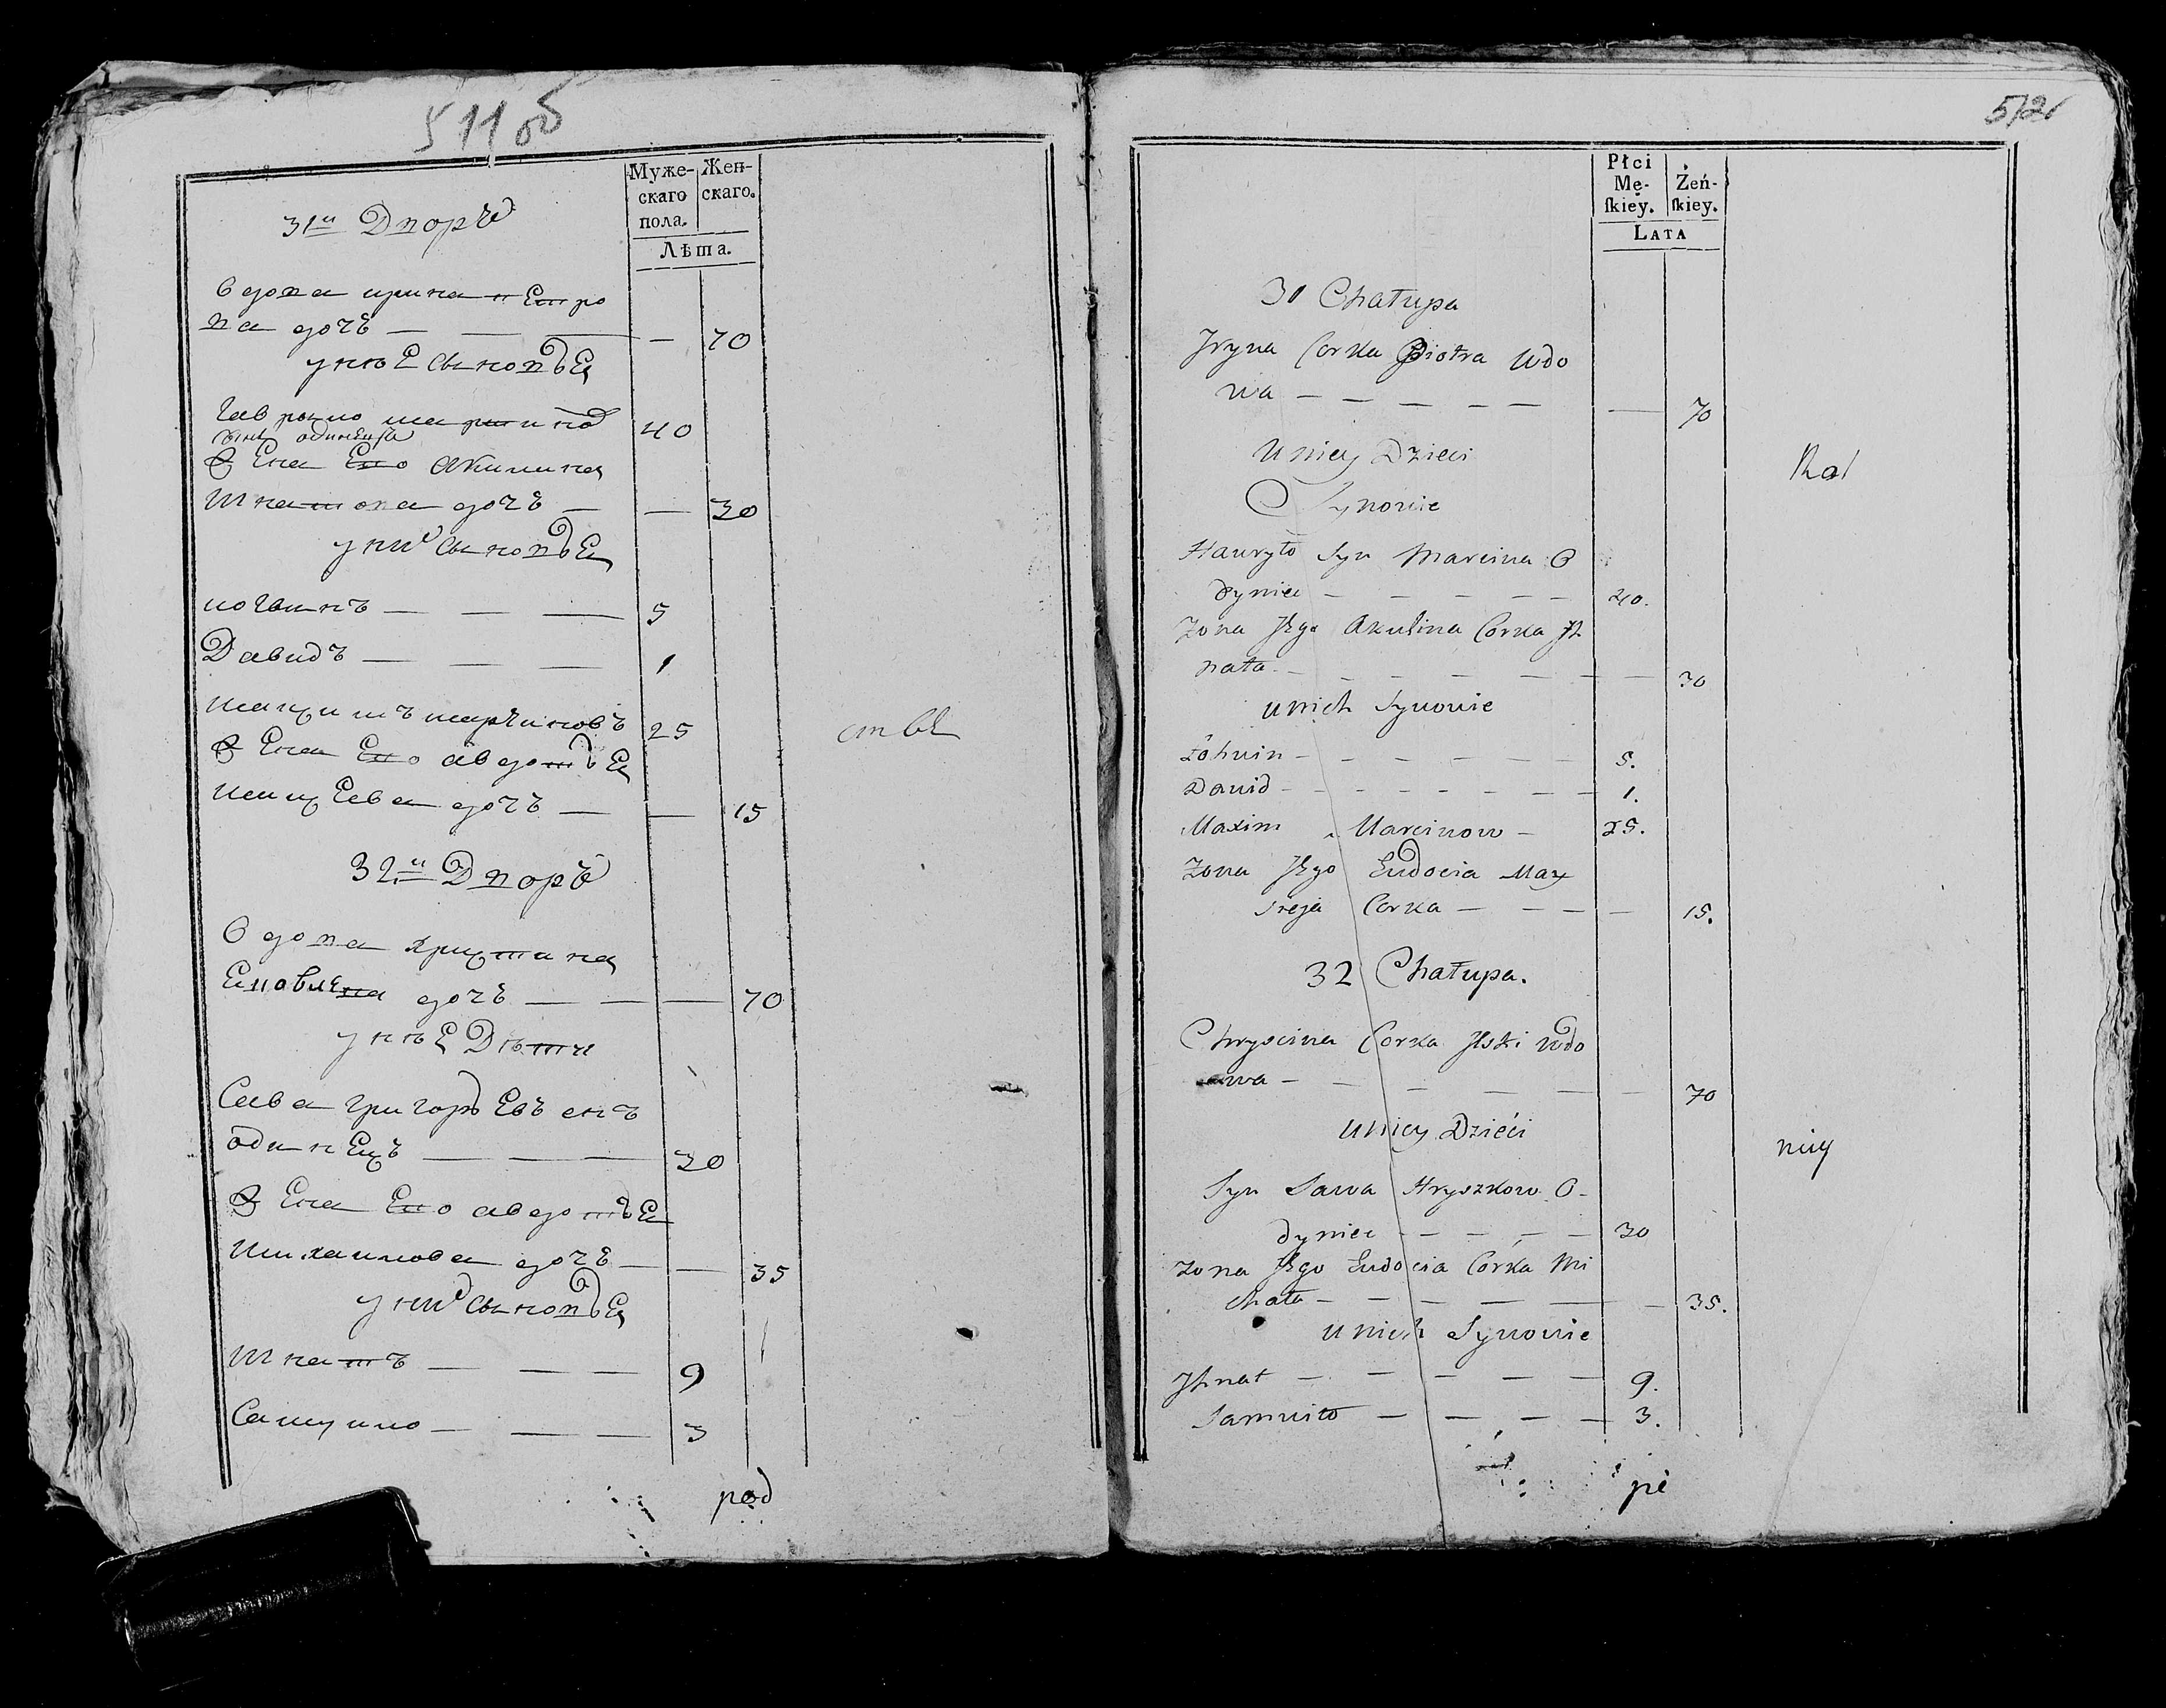 511 об
Муже-
скаго
пола.
Жен-
скаго.
Лѣта.
31й Дворъ
Вдова ирина петро
ва дочь — — — — 70
у нѣе сыновьѣ
Гаврыло мартинов
сынъ одинецъ 40
Жена его акилина
игнатова дочь — — 30
у них сыновьѣ
логвинъ — — — 5
Давидъ — — — 1
максимъ марциновъ 25
Жена его авдотьѣ
мацѣева дочь — — 15
32й Дворъ
Вдова христина
дочь — — — 70
у нѣе Дѣти
Сава григорьевъ снъ
одинецъ — — — 30
Жена его авдотьѣ
михаилова дочь — — 35
у них сыновьѣ
игнатъ — — — 9
Самуило — — — 3
pod
512
Płci
Mę-
ſkiey.
Żeń-
ſkiey.
LATA
31 Chałupa
Jryna Corka Piotra Wdo
wa — — — — — — 70
U niey Dzieci
Synowie
Hawryło Syn Marcina O
dyniec — — — — — 40.
Zona Jego Akulina Corka Jh
nata — — — — — — — 30
U nich Synowie
Łohwin — — — — — — 5.
Dawid — — — — — — — 1.
Maxim Marcinow — 25.
Zona Jego Eudocia Max
Corka — — — — 15.
32 Chałupa.
Chryscina Corka Wdo
wa — — — — — — 70
U niey Dzieći
Syn Sawa Hryszkow O-
dyniec — — — — — 30
Zona Jego Eudocia Córka Mi
chała — — — — — — 35.
U nich Synowie
Jhnat — — — — — 9.
Samuiło — — — — 3.